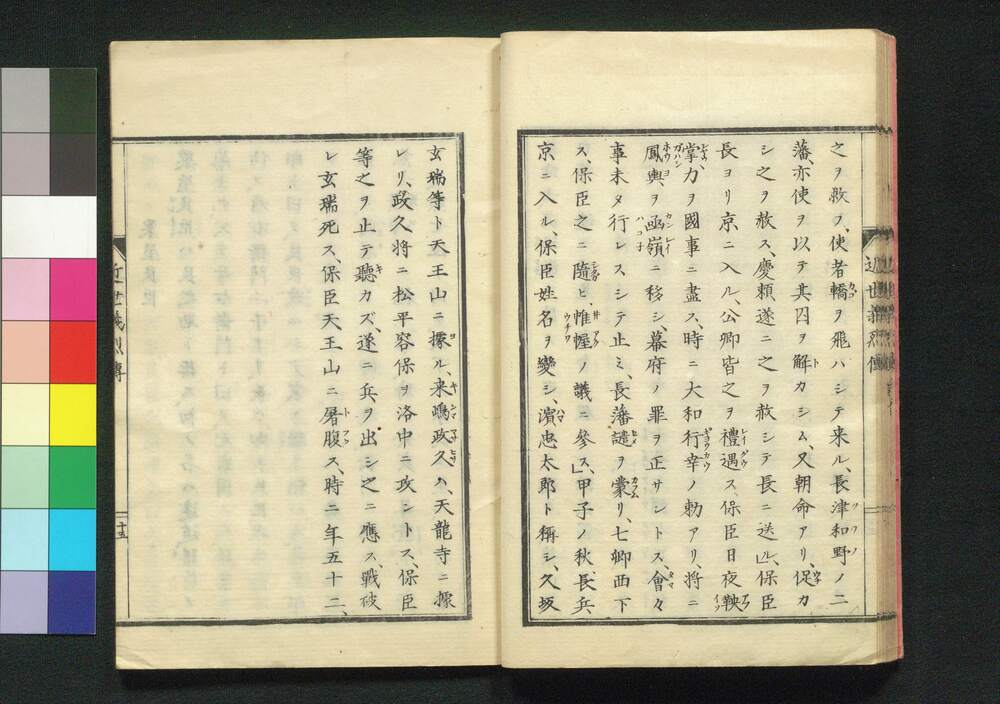 之ヲ救フ、使者轎ヲ飛ハシテ来ル、長津和野ノ二
藩、亦使ヲ以テ其囚ヲ解カシム、又朝命アリ、促カ
シ之ヲ赦ス、慶頼遂ニ之ヲ赦シテ長ニ送ル、保臣
長ヨリ京ニ入ル、公卿皆之ヲ禮遇ス、保臣日夜鞅
掌、力ヲ國事ニ盡ス、時ニ大和行幸ノ勅アリ、將ニ
鳳輿ヲ凾嶺ニ移シ、幕府ノ罪ヲ正サントス、會々
事未タ行レスシテ止ミ、長藩譴ヲ蒙リ、七卿西下
ス、保臣之ニ隨ヒ、惟幄ノ議ニ參ス」甲子ノ秋、長兵
京ニ入ル、保臣姓名ヲ變シ、濱忠太郎ト稱シ、久坂
玄瑞等ト天王山ニ據ル、来嶋政久ハ、天龍寺ニ據
レリ、政久將ニ松平容保ヲ洛中ニ攻ントス、保臣
等之ヲ止テ聽カズ、遂ニ兵ヲ出シ之ニ應ス、戰破
レ玄瑞死ス、保臣天王山ニ屠腹ス、時ニ年五十二、
近世義烈傳
十五